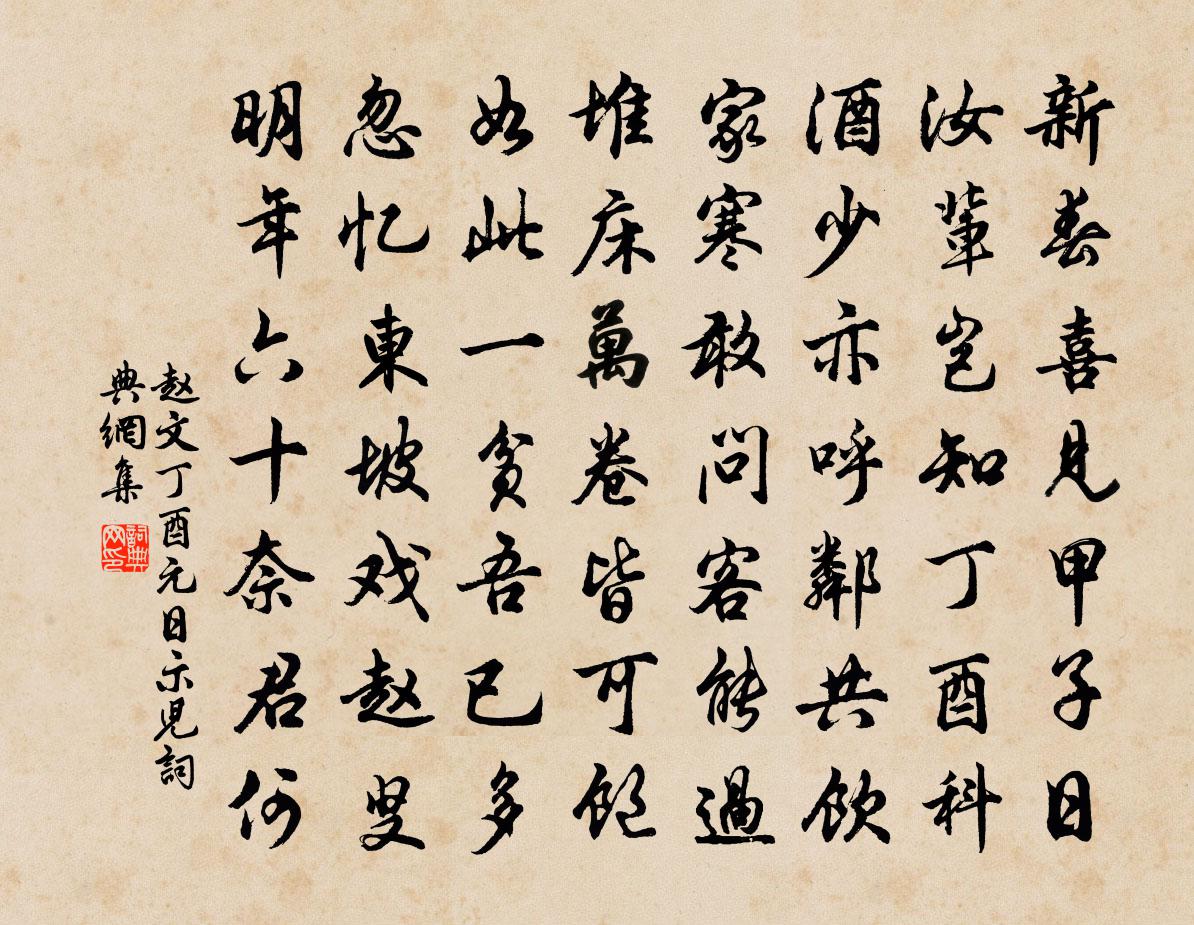 新春喜見甲子日
汝輩豈知丁酉科
酒少亦呼鄰共飲
家寒敢問客能過
堆床萬卷皆可飽
如此一貧吾已多
忽忆東坡戏赵叟
明年六十奈君何
赵文丁酉元日示児詞
典網集
詞典
网印